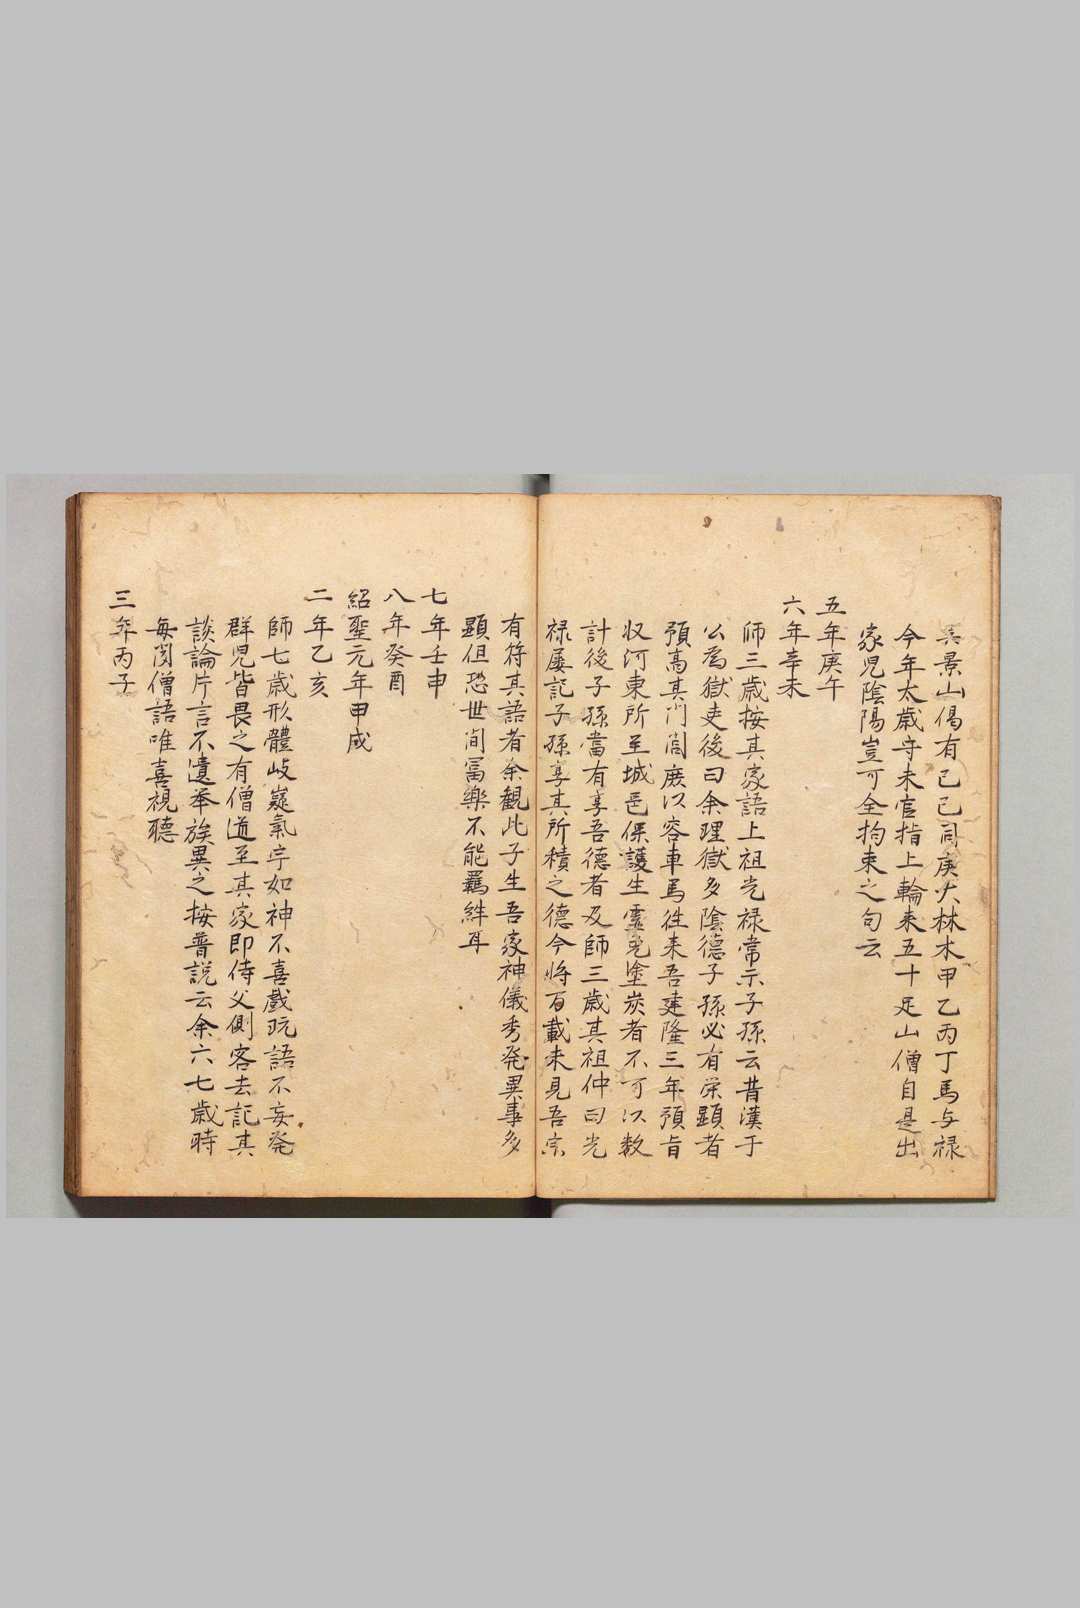 景山偈有己巳同庚大林木甲乙丙丁馬与禄
今年太歳守未官指上輪来五十足山僧自是出
家児陰陽豈可全拘束之句云
五年庚午
六年辛未
師三歳按其家語上祖光禄常示子孫云昔漢于
公為獄吏後曰余理獄多陰徳子孫必有栄顕者
預高其门閭庶以容車馬徃来吾建隆三年預旨
収河東所至城邑保護生霊免塗炭者不可以数
計後子孫當有享吾徳者及師三歳其祖仲曰光
禄屡記子孫享其所積之徳今将百載未見吾宗
有符其語者余観此子生吾家神儀秀発異事多
顕但恐世间冨樂不能羈絆耳
七年壬申
八年癸酉
紹聖元年甲戌
二年乙亥
師七歳形體岐嶷氣宇如神不喜戲玩語不妄発
群児皆畏之有僧道至其家即侍父側客去記其
談論片言不遺举族異之按普説云余六七歳時
毎闻僧語唯喜視聴
三年丙子